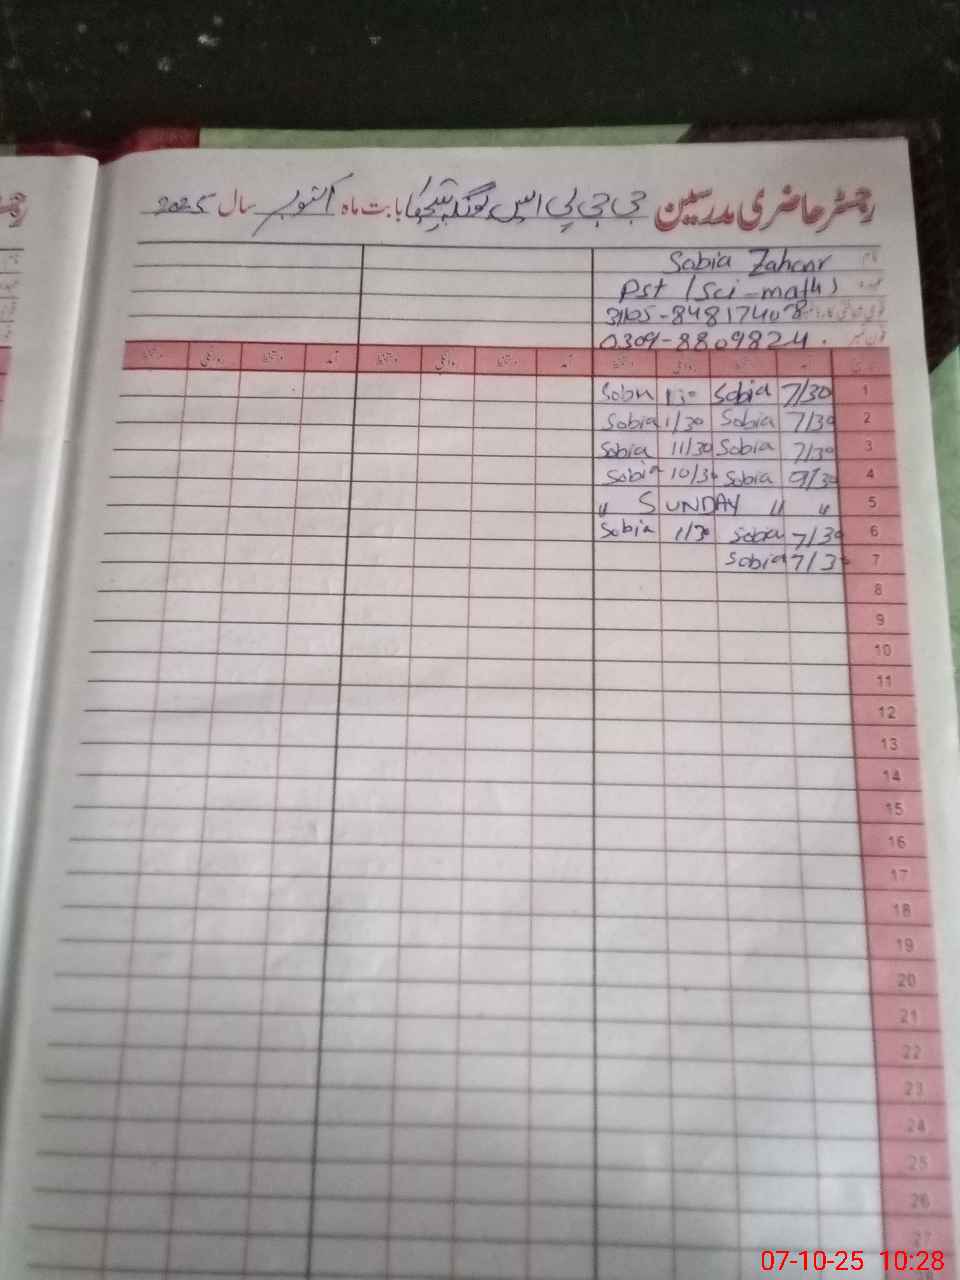 رجسٹر حاضری مدرسین جی جی پی ایس بابت ماہ اکتوبر سال 2025
نام Sobia Zahoor
عہدہ Pst (Sci-math)
قومی شناختی کارڈ نمبر
فون نمبر 0309-8809824
دستخط روانگی دستخط آمد دستخط روانگی دستخط آمد دستخط روانگی دستخط
1 7/30 Sobia
2 7/30 Sobia 1/30 Sobia
3 7/30 Sobia 11/30 Sobia
4 9/30 Sobia 10/30 Sobia
5 " SUNDAY " "
6 7/30 Sobia 1/30 Sobia
7 7/30 Sobia
8
9
10
11
12
13
14
15
16
17
18
19
20
21
22
23
24
25
26
27
07-10-25 10:28